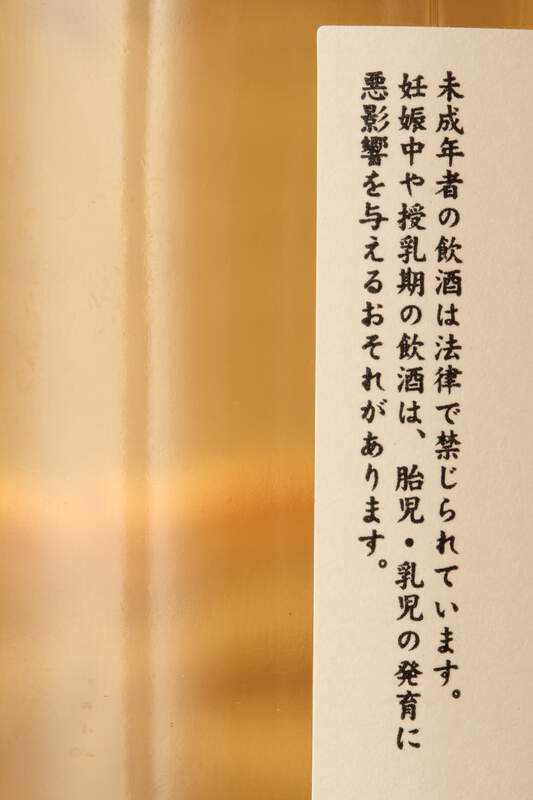 未成年者の飲酒は法律で禁じられています。
妊娠中や授乳期の飲酒は、胎児・乳児の発育に
悪影響を与えるおそれがあります。